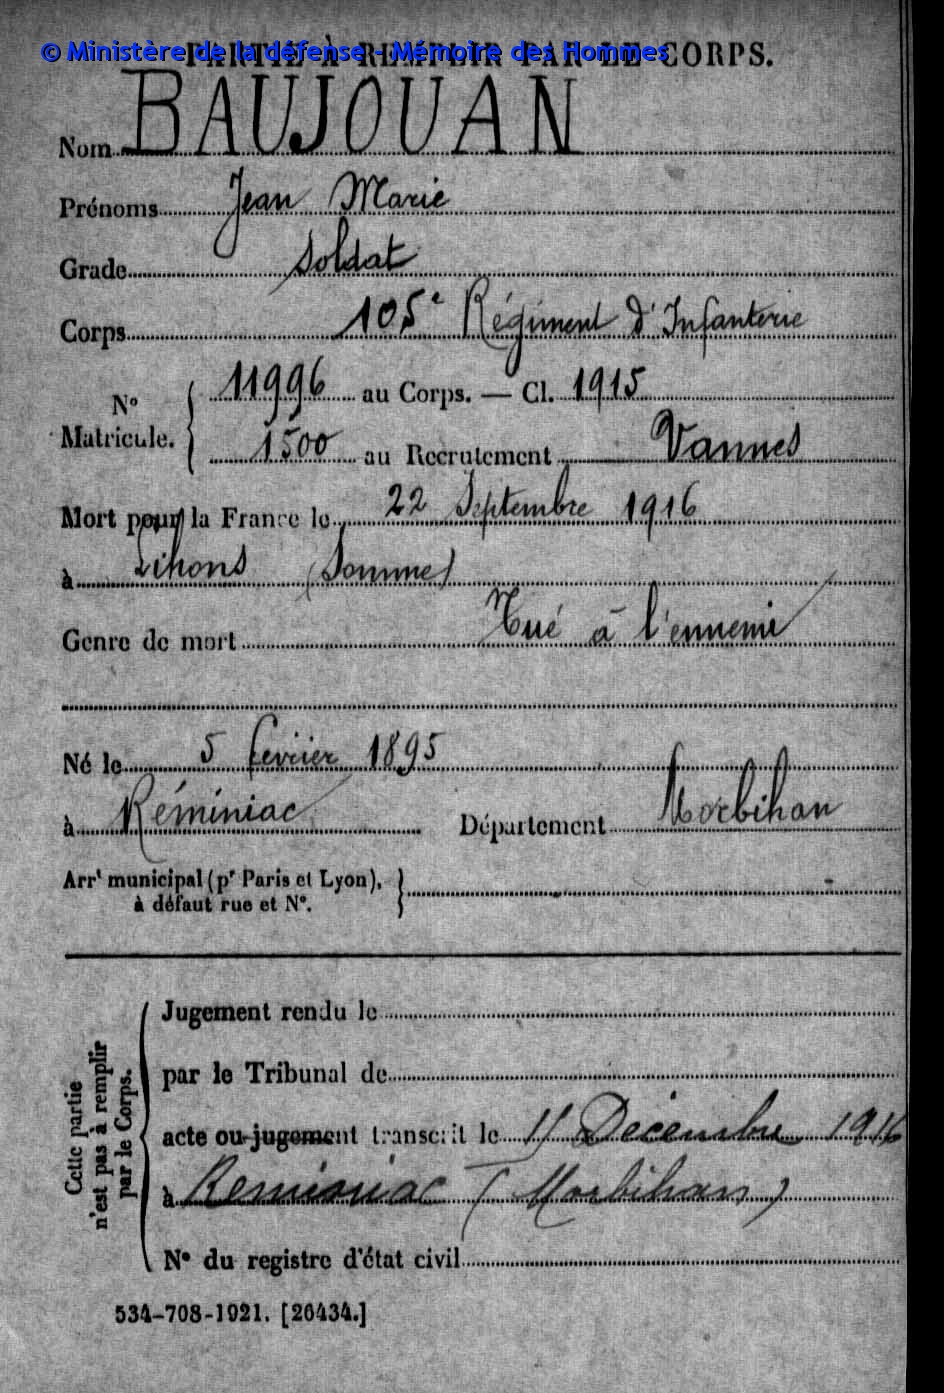 © Ministère de la défense - Mémoire des Hommes
PARTIE À REMPLIR PAR LE CORPS.
Nom BAUJOUAN
Prénoms Jean Marie
Grade Soldat
Corps 105e Régiment d'Infanterie
N° Matricule. { 11996 au Corps. — Cl. 1915
1500 au Recrutement Vannes
Mort pour la France le 22 Septembre 1916
à Lihons (Somme)
Genre de mort Tué à l'ennemi
Né le 5 février 1895
à Réminiac Département Morbihan
Arrt municipal (pr Paris et Lyon), }
à défaut rue et N°.
Cette partie
n'est pas à remplir
par le Corps.
Jugement rendu le
par le Tribunal de
acte ou jugement transcrit le 11 Décembre 1916
à Reminiac (Morbihan)
N° du registre d'état civil
534-708-1921. [26434.]